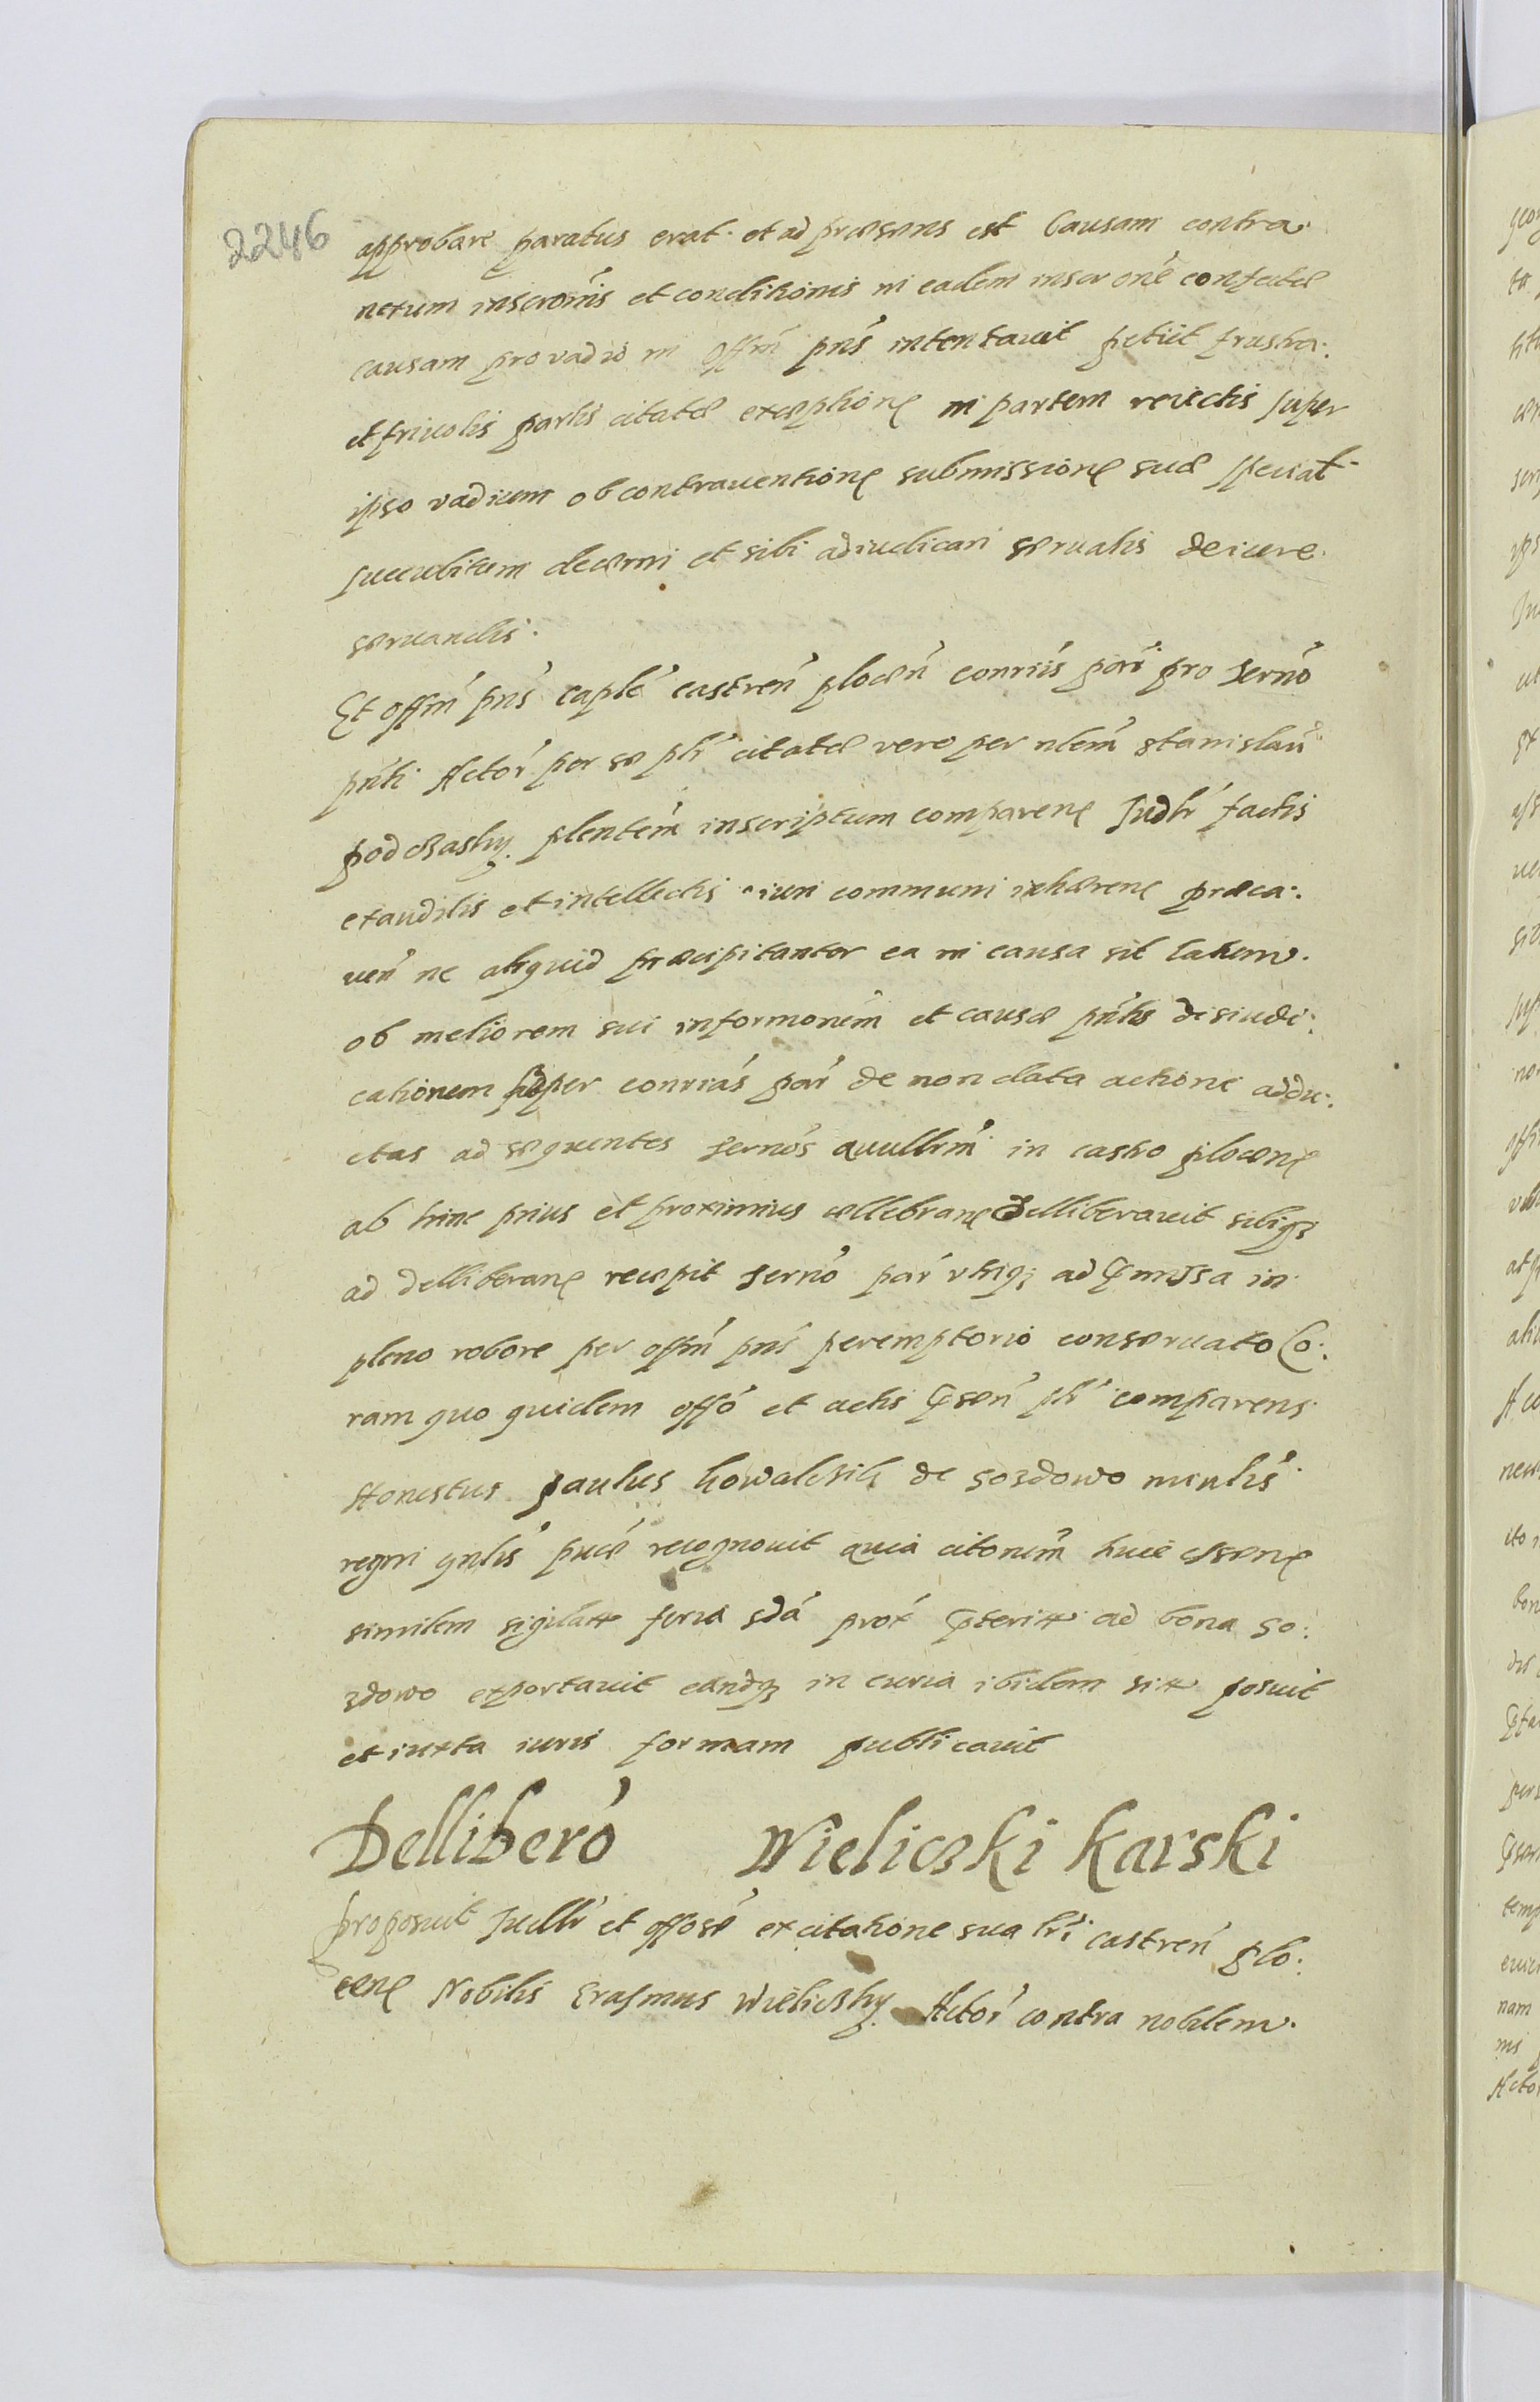 2246
approbare paratus erat. et ad præsens est Causam contra
netum inscroīnis et conditionis in eadem inscronē contentæ
causam pro vadio in Offm̄ pn̄s intentauit petiit frustra:
et friuolis partis citatæ exceptione in partem reiectis super
ipso vadium ob contrauentione submissione suæ speciat
succubitum decerni et sibi adiudicari seruatis de iure
seruandis.
Et offm̄ pn̄s caplē castren̄ plocen̄ conriīs par̄ pro Termō
pn̄ti Actor̄ per se plr̄ citatæ vero per nlem̄ Stanislaū
podczasky plentem̄ inscriptum comparen Judlr̄ factis
exauditis et intellectis iuri communi inhæren præca:
uen̄ ne aliquid præcipitanter ea in causa sit latum.
ob meliorem sui informonem̄ et causæ pn̄tis disiudi:
cationem super conrias̄ par̄ de non data actione addu:
ctas ad sequentes Termōs quullrm̄ in castro plocen
ab hinc prius et proximius cellebran Delliberauit sibiqꝫ
ad Delliberan recepit Termō par̄ vtriqꝫ ad p̄missa in
pleno robore per offm̄ pn̄s peremptorio conseruato Co:
ram quo quidem offō et actis p̄sen̄ plr̄ comparens
Honestus paulus kowalczik de Sozdowo minlis̄
regni gnlis̄ pucē recognouit quia citonem̄ huic essen
similem sigilatt feria sdā prox̄ p̄terita ad bona So:
zdowo exportauit eandqꝫ in curia ibidem sita posuit
et iuxta iuris formam publicauit
Delliberō Wieliczki karski
proposuit Judlr̄ et offosē ex citatione sua lrī castren̄ plo:
cen Nobilis Erasmus Wieliczky Actor̄ contra nobilem